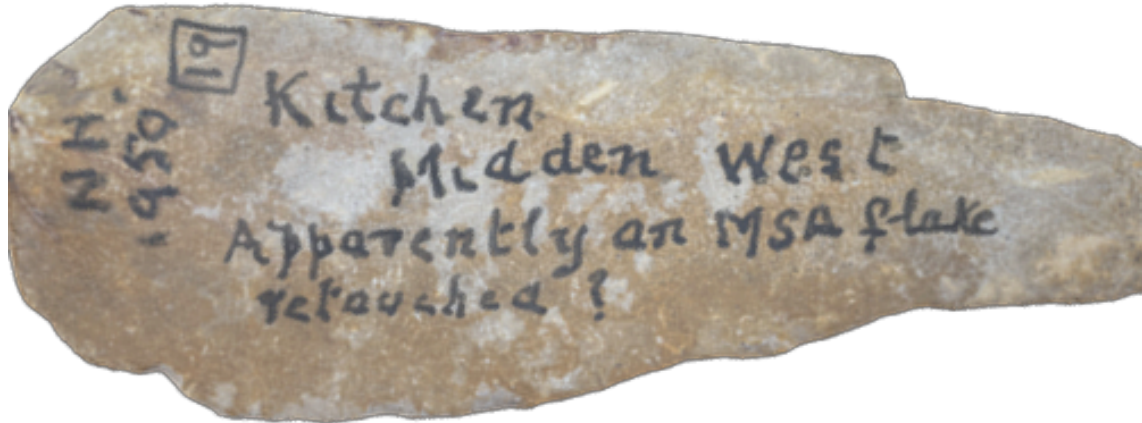 19
N H.
1950.
Kitchen
Midden West
Apparently an MSA flake
retouched ?